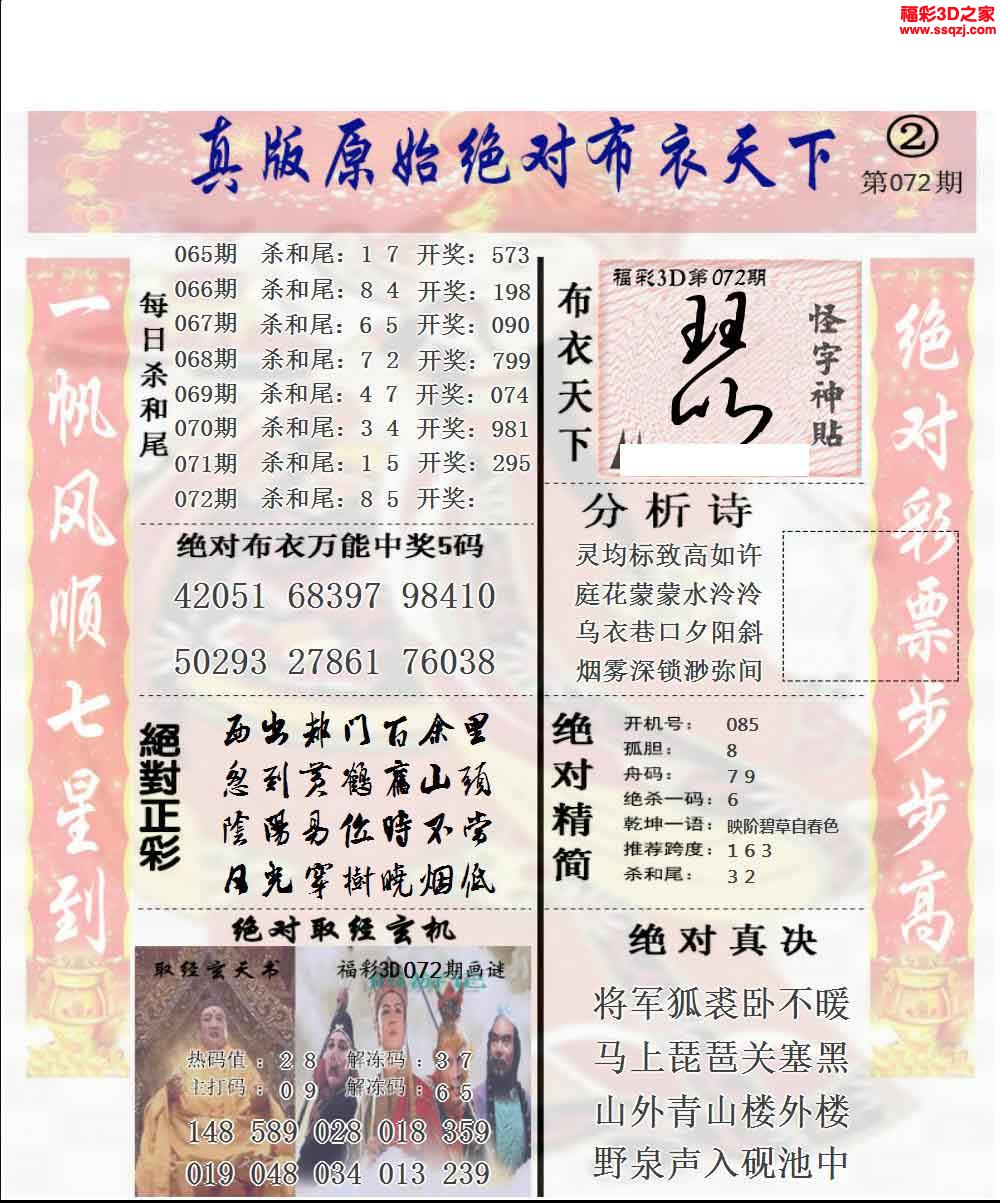 福彩3D之家
www.ssqzj.com
真版原始绝对布衣天下
②
第072期
一帆风顺七星到
每日杀和尾
065期 杀和尾：1 7 开奖：573
066期 杀和尾：8 4 开奖：198
067期 杀和尾：6 5 开奖：090
068期 杀和尾：7 2 开奖：799
069期 杀和尾：4 7 开奖：074
070期 杀和尾：3 4 开奖：981
071期 杀和尾：1 5 开奖：295
072期 杀和尾：8 5 开奖：
绝对布衣万能中奖5码
42051 68397 98410
50293 27861 76038
絕對正彩
西出都门百余里
忽到黄鹤舊山頭
陰陽易位時不常
日光穿樹曉烟低
绝对取经玄机
取经玄天书
福彩3D072期画谜
热码值：2 8 解冻码：3 7
主打码：0 9 解冻码：6 5
148 589 028 018 359
019 048 034 013 239
布衣天下
福彩3D第072期
怪字神贴
分析诗
灵均标致高如许
庭花蒙蒙水泠泠
乌衣巷口夕阳斜
烟雾深锁渺弥间
绝对精简
开机号： 085
孤胆： 8
舟码： 7 9
绝杀一码：6
乾坤一语：映阶碧草自春色
推荐跨度：1 6 3
杀和尾： 3 2
绝对真决
将军狐裘卧不暖
马上琵琶关塞黑
山外青山楼外楼
野泉声入砚池中
绝对彩票步步高